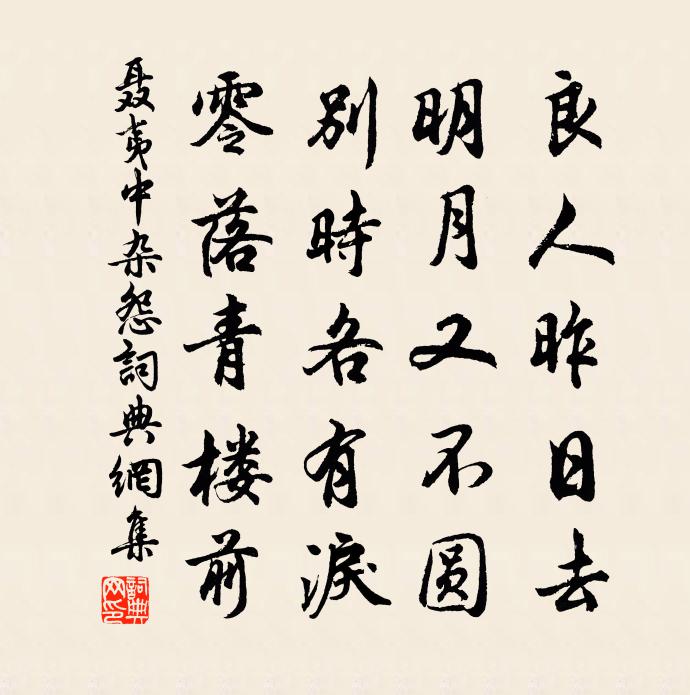 良人昨日去
明月又不圆
別時各有淚
零落青楼前
聂夷中杂怨詞典網集
詞典網印